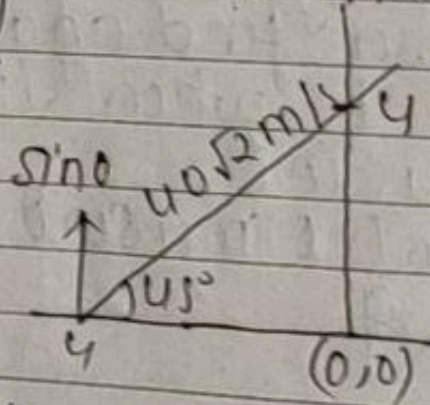 sinθ
40√2 m/s
4
45°
4
(0,0)